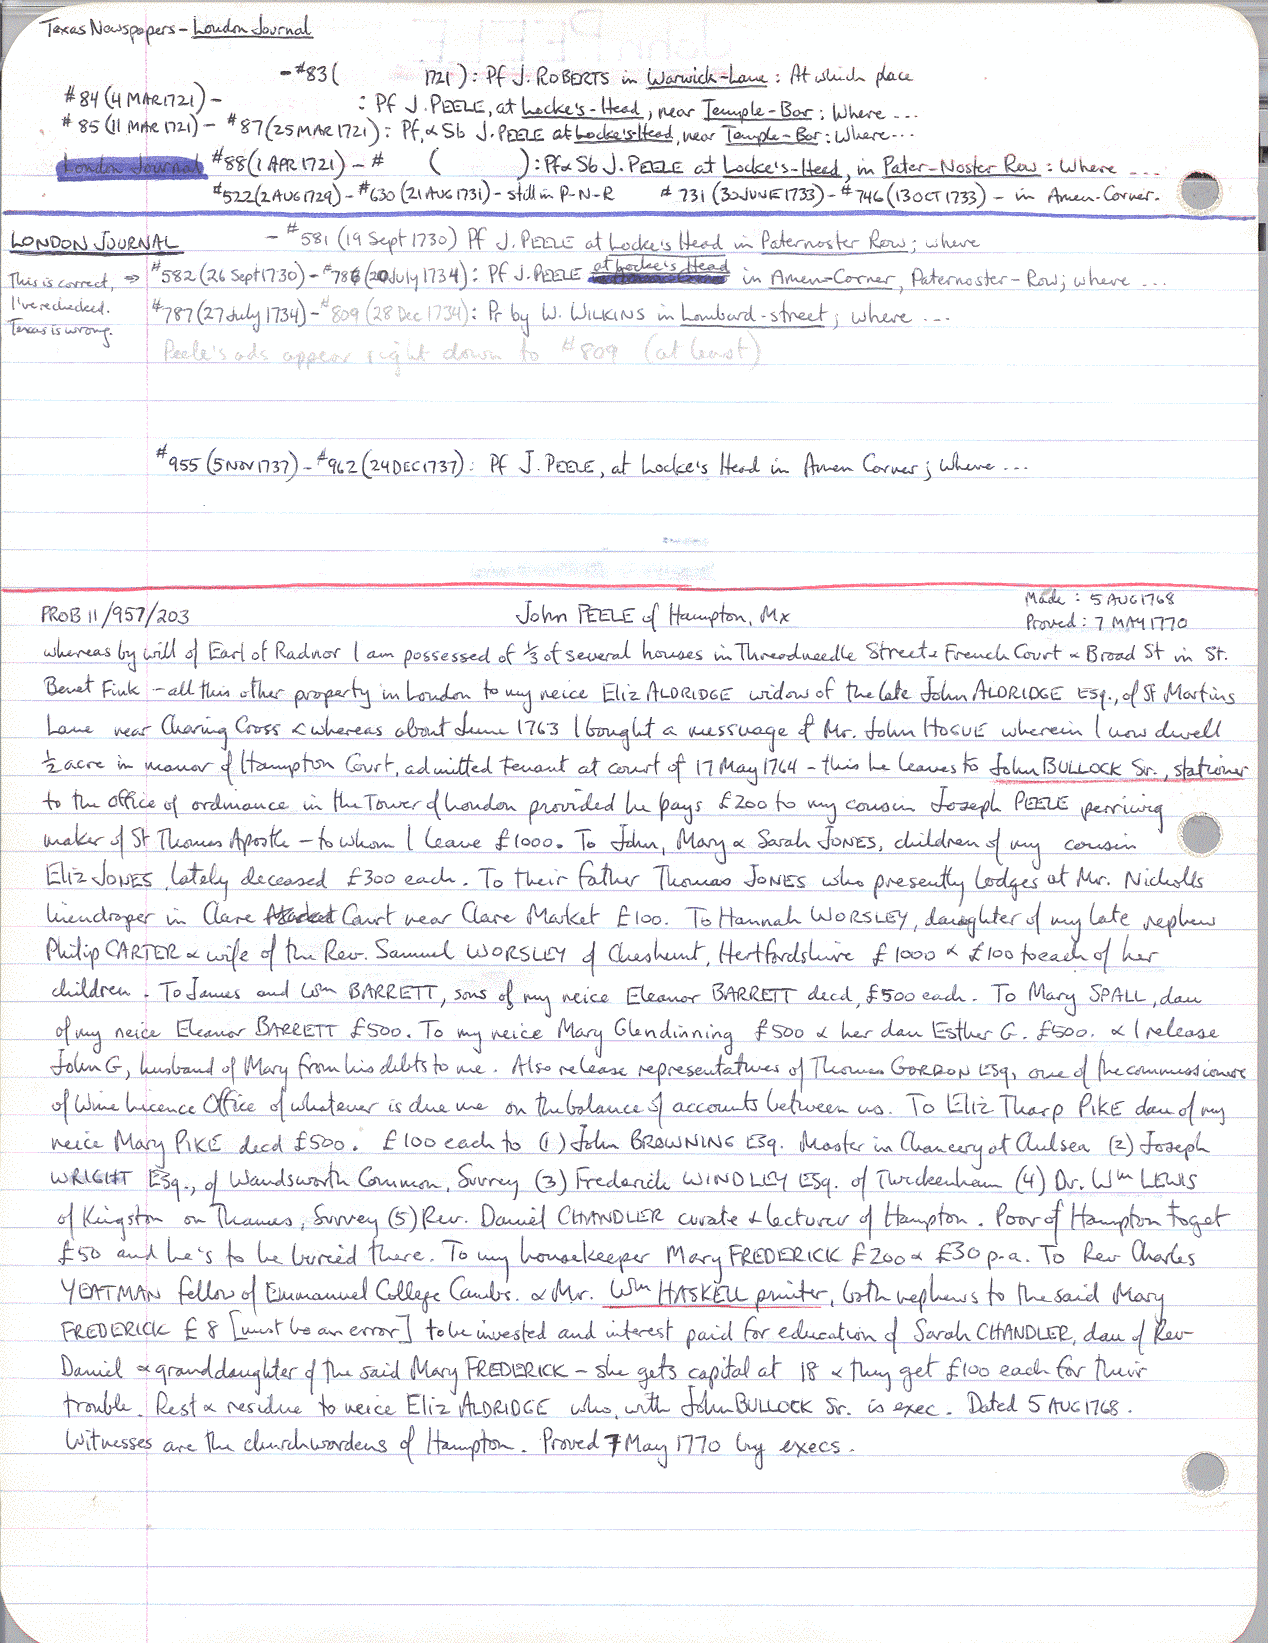 Texas Newspapers - London Journal
- #83 ( 1721) : Pf J. ROBERTS in Warwick-Lane : At which place
#84 (4 MAR 1721) - : Pf J. PEELE, at Locke's-Head, near Temple-Bar : Where ...
#85 (11 MAR 1721) - #87 (25 MAR 1721) : Pf, & Sb J. PEELE at Locke's Head, near Temple-Bar : Where ...
London Journal #88 (1 APR 1721) - # ( ) : Pf & Sb J. PEELE at Locke's-Head, in Pater-Noster Row : Where ...
#522 (2 AUG 1729) - #630 (21 AUG 1731) - still in P-N-R # 731 (30 JUNE 1733) - #746 (13 OCT 1733) - in Amen-Corner.
LONDON JOURNAL - #581 (19 Sept 1730) Pf J. PEELE at Locke's Head in Paternoster Row; where
This is correct, ⇒ #582 (26 Sept 1730) - #786 (20 July 1734) : Pf J. PEELE at Locke's Head in Amen-Corner, Paternoster-Row; where ...
I've rechecked. #787 (27 July 1734) - #809 (28 Dec 1734) : Pr by W. WILKINS in Lombard-street; where ...
Texas is wrong.
Peele's ads appear right down to #809 (at least)
#955 (5 NOV 1737) - #962 (24 DEC 1737) : Pf J. PEELE, at Locke's Head in Amen Corner; Where ...
Made : 5 AUG 1768
PROB 11/957/203 John PEELE of Hampton, Mx Proved : 7 MAY 1770
whereas by will of Earl of Radnor I am possessed of ⅓ of several houses in Threadneedle Street & French Court & Broad St in St.
Benet Fink - all this other property in London to my neice Eliz ALDRIDGE widow of the late John ALDRIDGE Esq., of St Martins
Lane near Charing Cross & whereas about June 1763 I bought a messuage of Mr. John HOGUE wherein I now dwell
½ acre in manor of Hampton Court, admitted tenant at court of 17 May 1764 - this he leaves to John BULLOCK Sr., stationer
to the office of ordinance in the Tower of London provided he pays £200 to my cousin Joseph PEELE perriwig
maker of St Thomas Apostle - to whom I leave £1000. To John, Mary & Sarah JONES, children of my cousin
Eliz JONES, lately deceased £300 each. To their father Thomas JONES who presently lodges at Mr. Nicholls
linendraper in Clare Court near Clare Market £100. To Hannah WORSLEY, daughter of my late nephew
Philip CARTER & wife of the Rev. Samuel WORSLEY of Cheshunt, Hertfordshire £1000 & £100 to each of her
children. To James and Wm BARRETT, sons of my neice Eleanor BARRETT decd, £500 each. To Mary SPALL, dau
of my neice Eleanor BARRETT £500. To my neice Mary Glendinning £500 & her dau Esther G. £500. & I release
John G, husband of Mary from his debts to me. Also release representatives of Thomas GORDON Esq, one of the commissioners
of Wine Licence Office of whatever is due me on the balance of accounts between us. To Eliz Tharp PIKE dau of my
neice Mary PIKE decd £500. £100 each to (1) John BROWNING Esq. Master in Chancery at Chelsea (2) Joseph
WRIGHT Esq., of Wandsworth Common, Surrey (3) Frederick WINDLEY Esq. of Twickenham (4) Dr. Wm LEWIS
of Kingston on Thames, Surrey (5) Rev. Daniel CHANDLER curate & lecturer of Hampton. Poor of Hampton to get
£50 and he's to be buried there. To my housekeeper Mary FREDERICK £200 & £30 p.a. To Rev Charles
YEATMAN fellow of Emmanuel College Cambs. & Mr. Wm HASKELL printer, both nephews to the said Mary
FREDERICK £8 [must be an error] to be invested and interest paid for education of Sarah CHANDLER, dau of Rev
Daniel & granddaughter of the said Mary FREDERICK - she gets capital at 18 & they get £100 each for their
trouble. Rest & residue to neice Eliz ALDRIDGE who, with John BULLOCK Sr. is exec. Dated 5 AUG 1768.
Witnesses are the churchwardens of Hampton. Proved 7 May 1770 by execs.